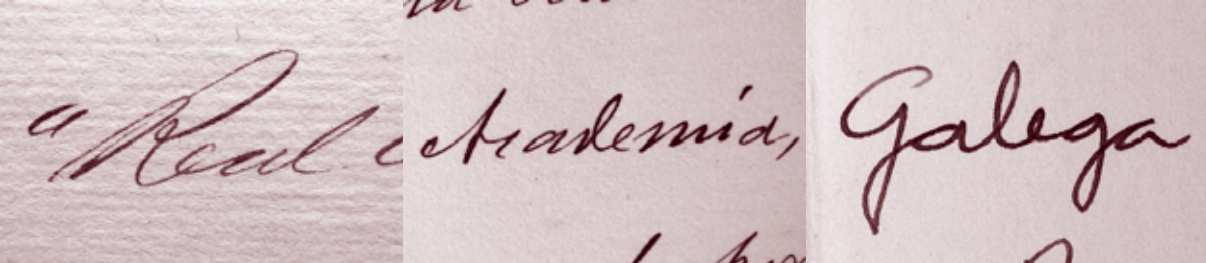 "Real Academia, Galega